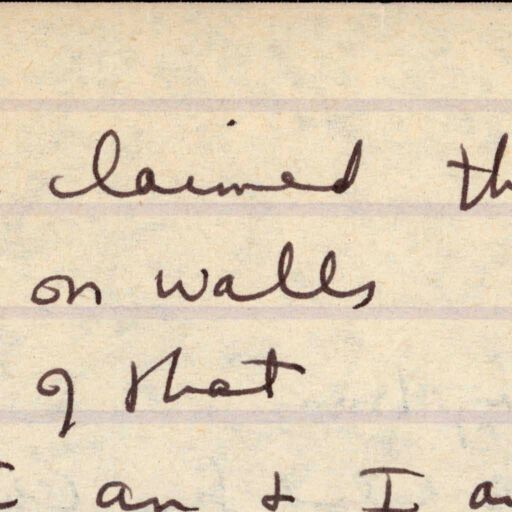 claimed th
on walls
of that
I am & I a